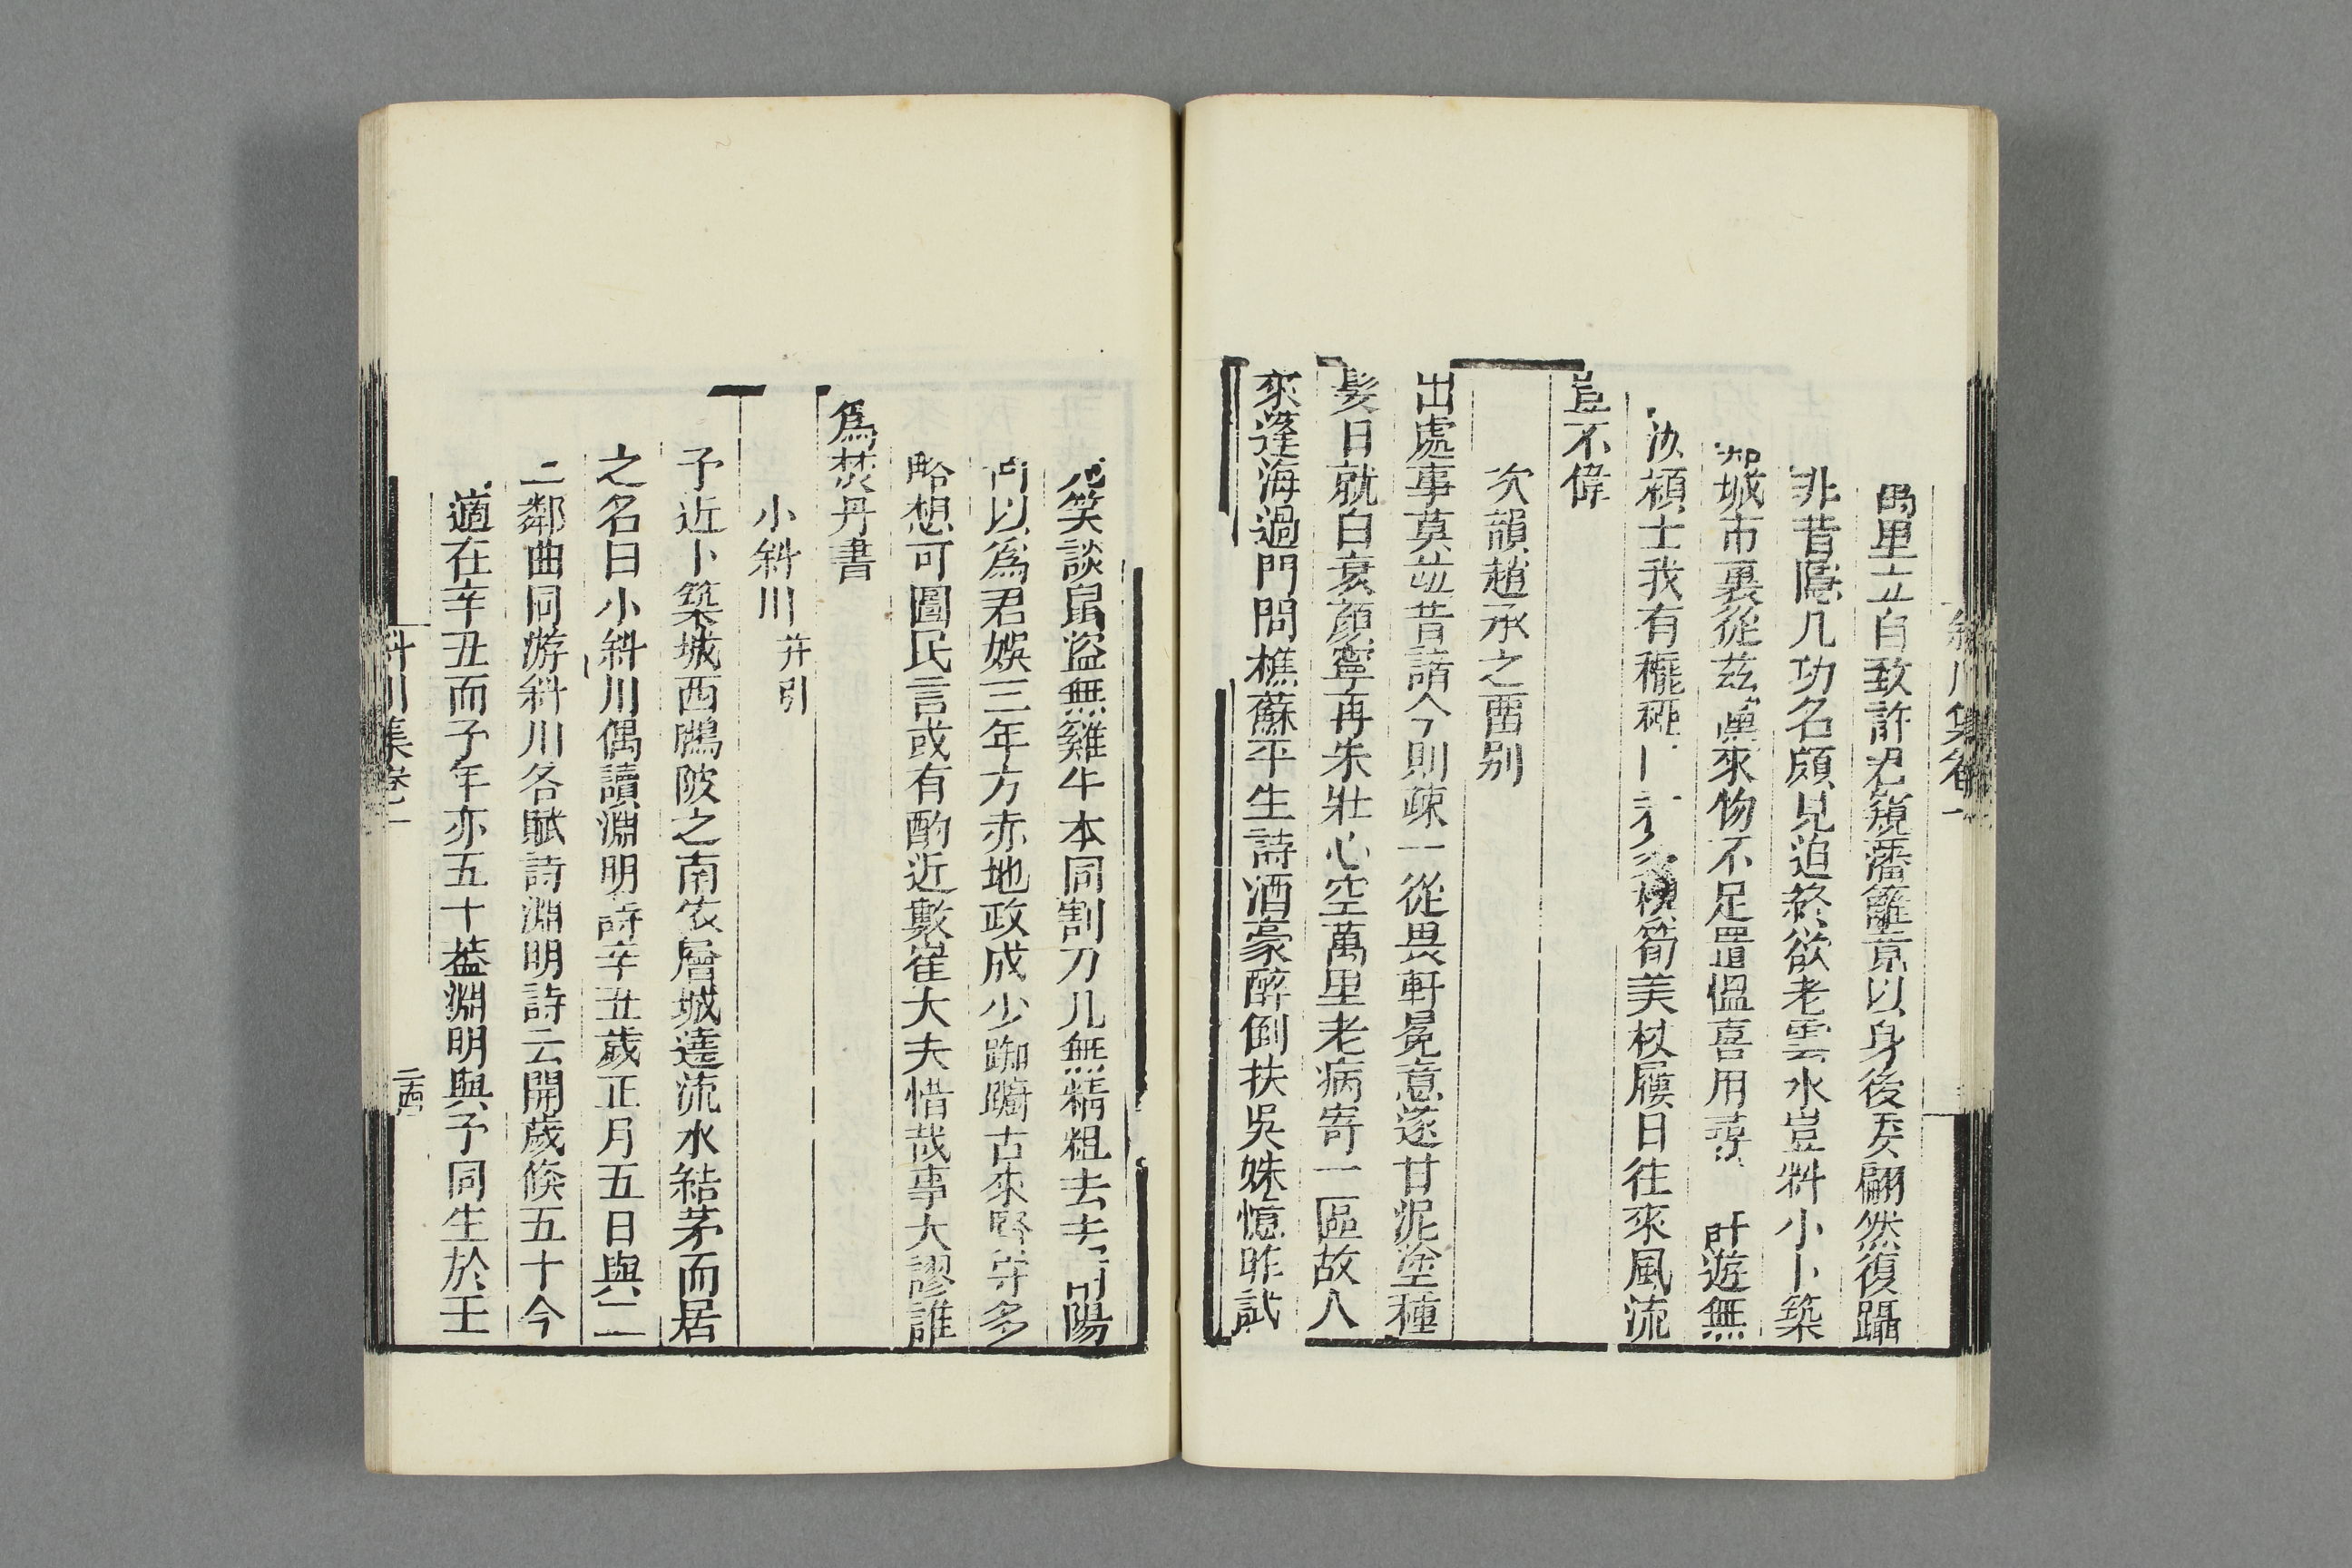 斜川集卷一
里立自致許君窺藩籬竟以身後矣翩然復躡
非昔隱几功名頗見迫終欲老雲水豈料小卜築
城市裏從茲來物不足置慍喜用尋遊無
汝潁士我有䆉稏筍美杖屨日往來風流
豈不偉
次韻趙承之畱别
出處事莫竝昔諳今則疎一從畏軒冕意遂甘泥塗種
髮日就白衰顔寧再朱壯心空萬里老病寄一區故人
來逢海過門問樵蘇平生詩酒豪醉倒扶吳姝憶昨試
笑談鼠盜無雞牛本同割刀几無精粗去去陽
以爲君娛三年方赤地政成少踟躕古來賢守多
略想可圖民言或有酌近數崔大夫惜哉事大謬誰
爲焚丹書
小斜川并引
予近卜築城西鵰陂之南依層城遶流水結茅而居
之名曰小斜川偶讀淵明詩辛丑歲正月五日與二
二鄰曲同游斜川各賦詩淵明詩云開歲倐五十今
適在辛丑而予年亦五十葢淵明與予同生於壬
斜川集卷一
二西